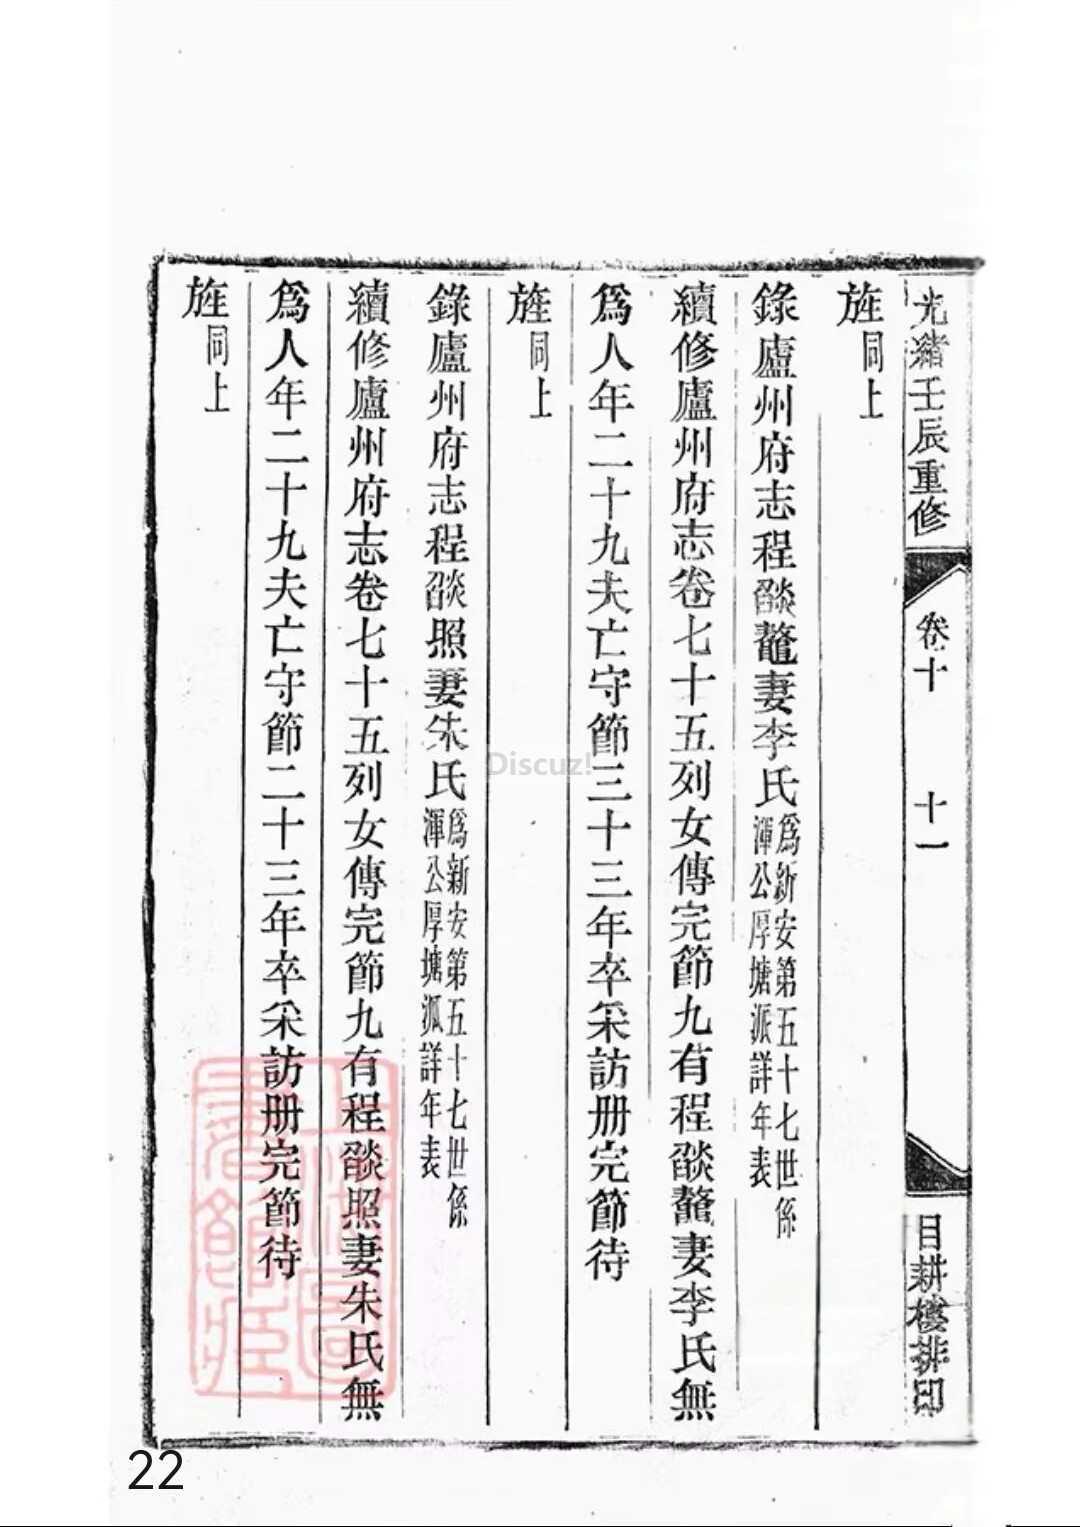 光緒壬辰重修
卷十
十一
目耕樓排印
旌同上
錄廬州府志程燄鼇妻李氏爲新安第五十七世係
渾公厚塘派詳年表
續修廬州府志卷七十五列女傳完節九有程燄鼇妻李氏無
爲人年二十九夫亡守節三十三年卒采訪册完節待
旌同上
錄廬州府志程燄照妻朱氏爲新安第五十七世係
渾公厚塘派詳年表
續修廬州府志卷七十五列女傳完節九有程燄照妻朱氏無
爲人年二十九夫亡守節二十三年卒采訪册完節待
旌同上
上海圖書館藏
Discuz!
22